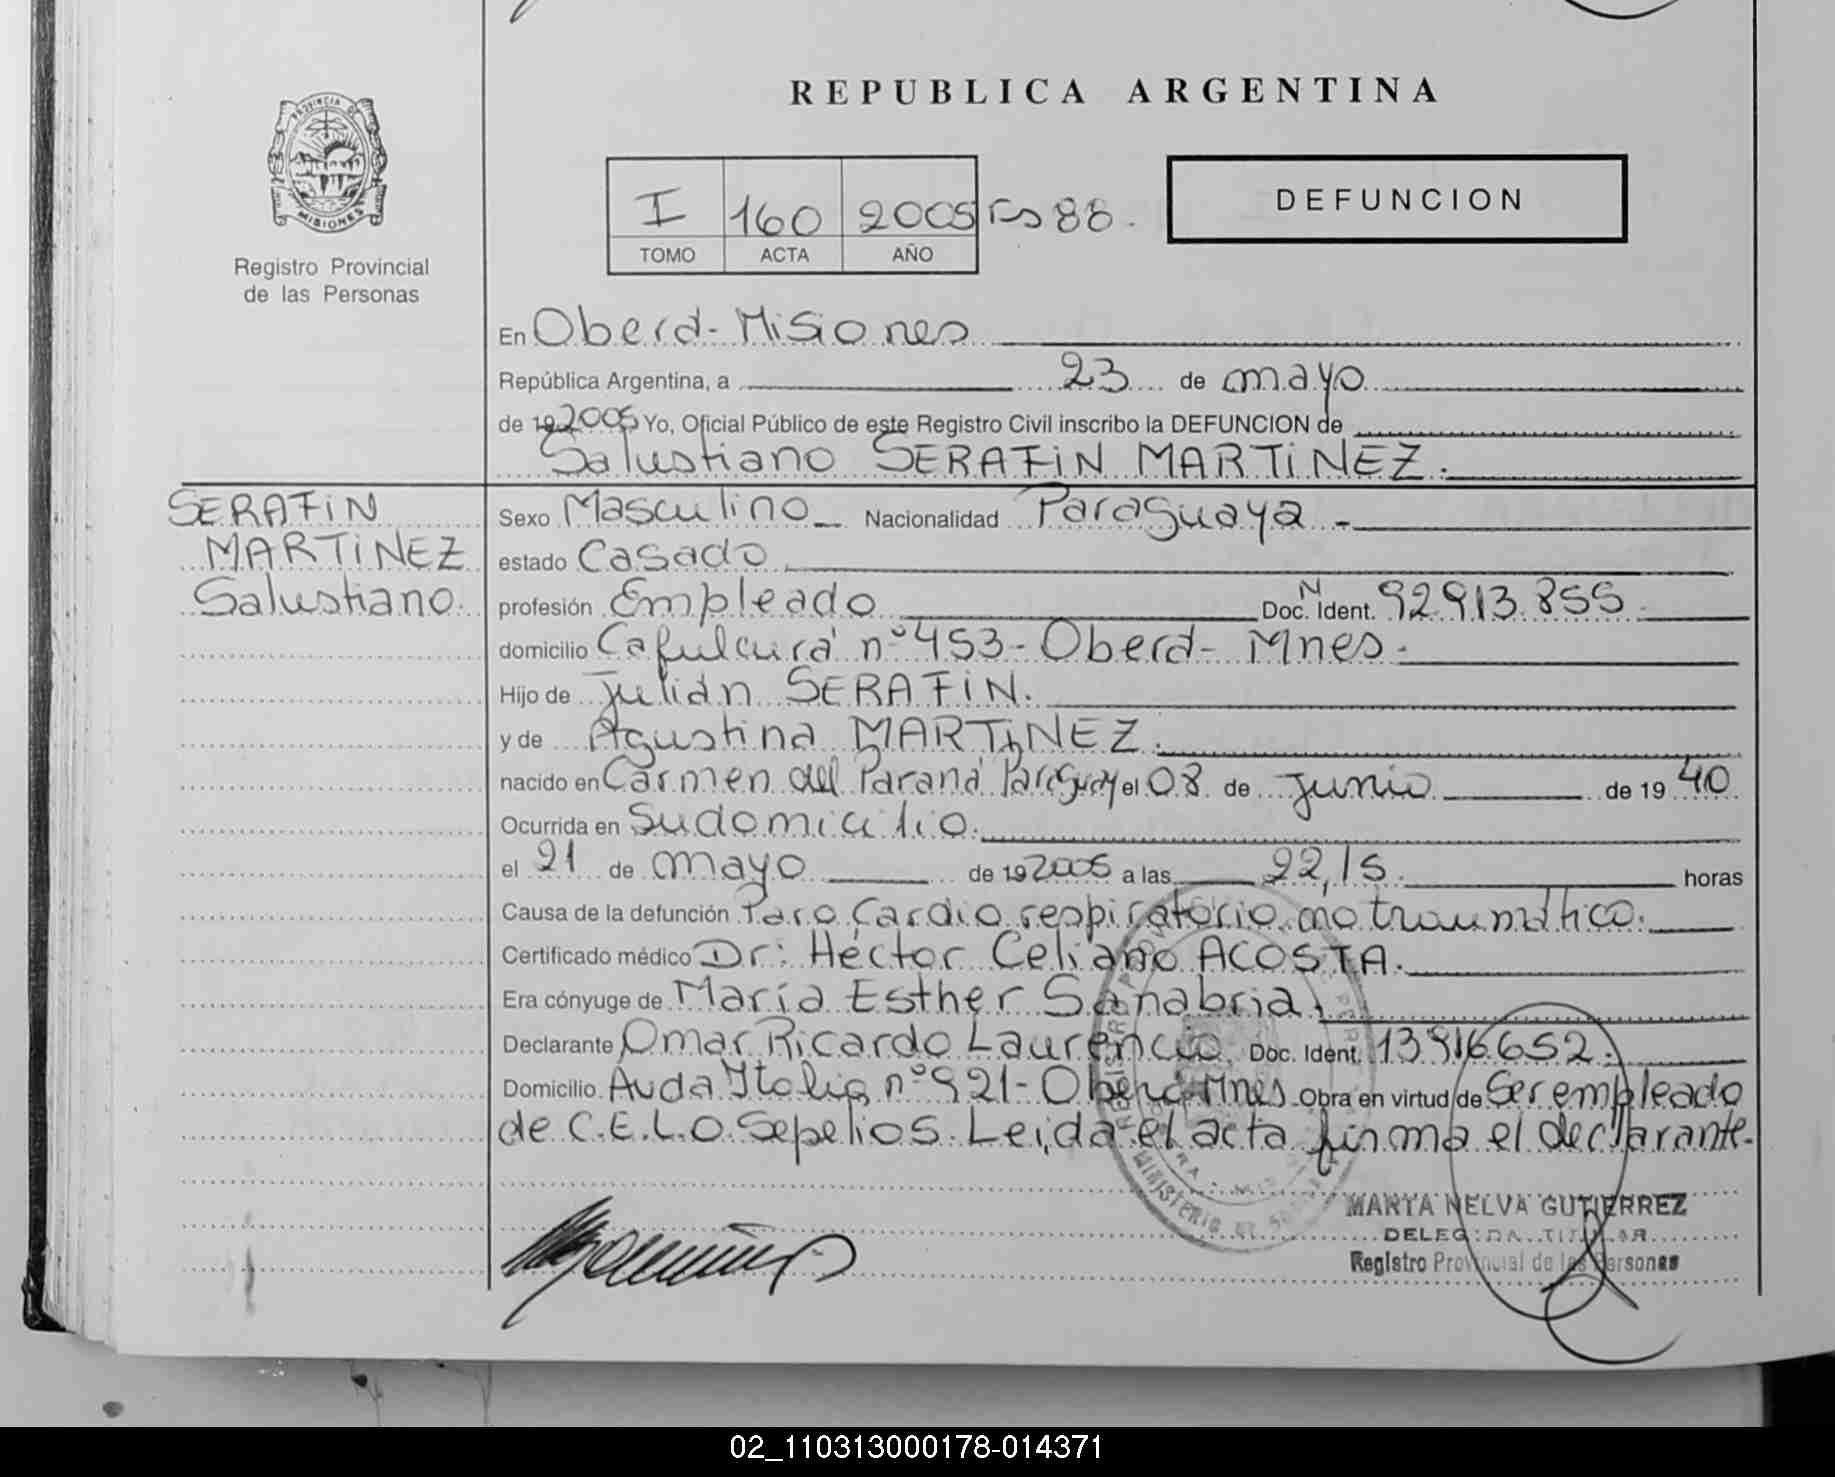 REPUBLICA ARGENTINA
PROVINCIA DE
MISIONES
Registro Provincial
de las Personas
I 160 2005 Fs 88.
TOMO ACTA AÑO
DEFUNCION
En Oberá- Misiones
República Argentina, a 23 de mayo
de 19 2005 Yo, Oficial Público de este Registro Civil inscribo la DEFUNCION de
Salustiano SERAFIN MARTINEZ.
SERAFIN
MARTINEZ
Salustiano.
Sexo Masculino Nacionalidad Paraguaya.-
estado Casado
profesión Empleado Doc. Ident. N 92.913.855
domicilio Cafulcurá nº 453- Oberá- Mnes.
Hijo de Julián SERAFIN.
y de Agustina MARTINEZ.
nacido en Carmen del Paraná Paraguay el 08 de junio de 19 40
Ocurrida en Su domicilio.
el 21 de mayo de 19 2005 a las 22,15. horas
Causa de la defunción Paro Cardio respiratorio no traumático.
Certificado médico Dr: Héctor Celiano ACOSTA.
Era cónyuge de María Esther Sanabria.
Declarante Omar Ricardo Laurencio Doc. Ident. 13.916.652.
Domicilio Avda Italia nº 921- Oberá Mnes Obra en virtud de Ser empleado
de C.E.L.O. Sepelios. Leida el acta firma el declarante.
MARTA NELVA GUTIERREZ
DELEGADA TITULAR
Registro Provincial de las Personas
02_110313000178-014371